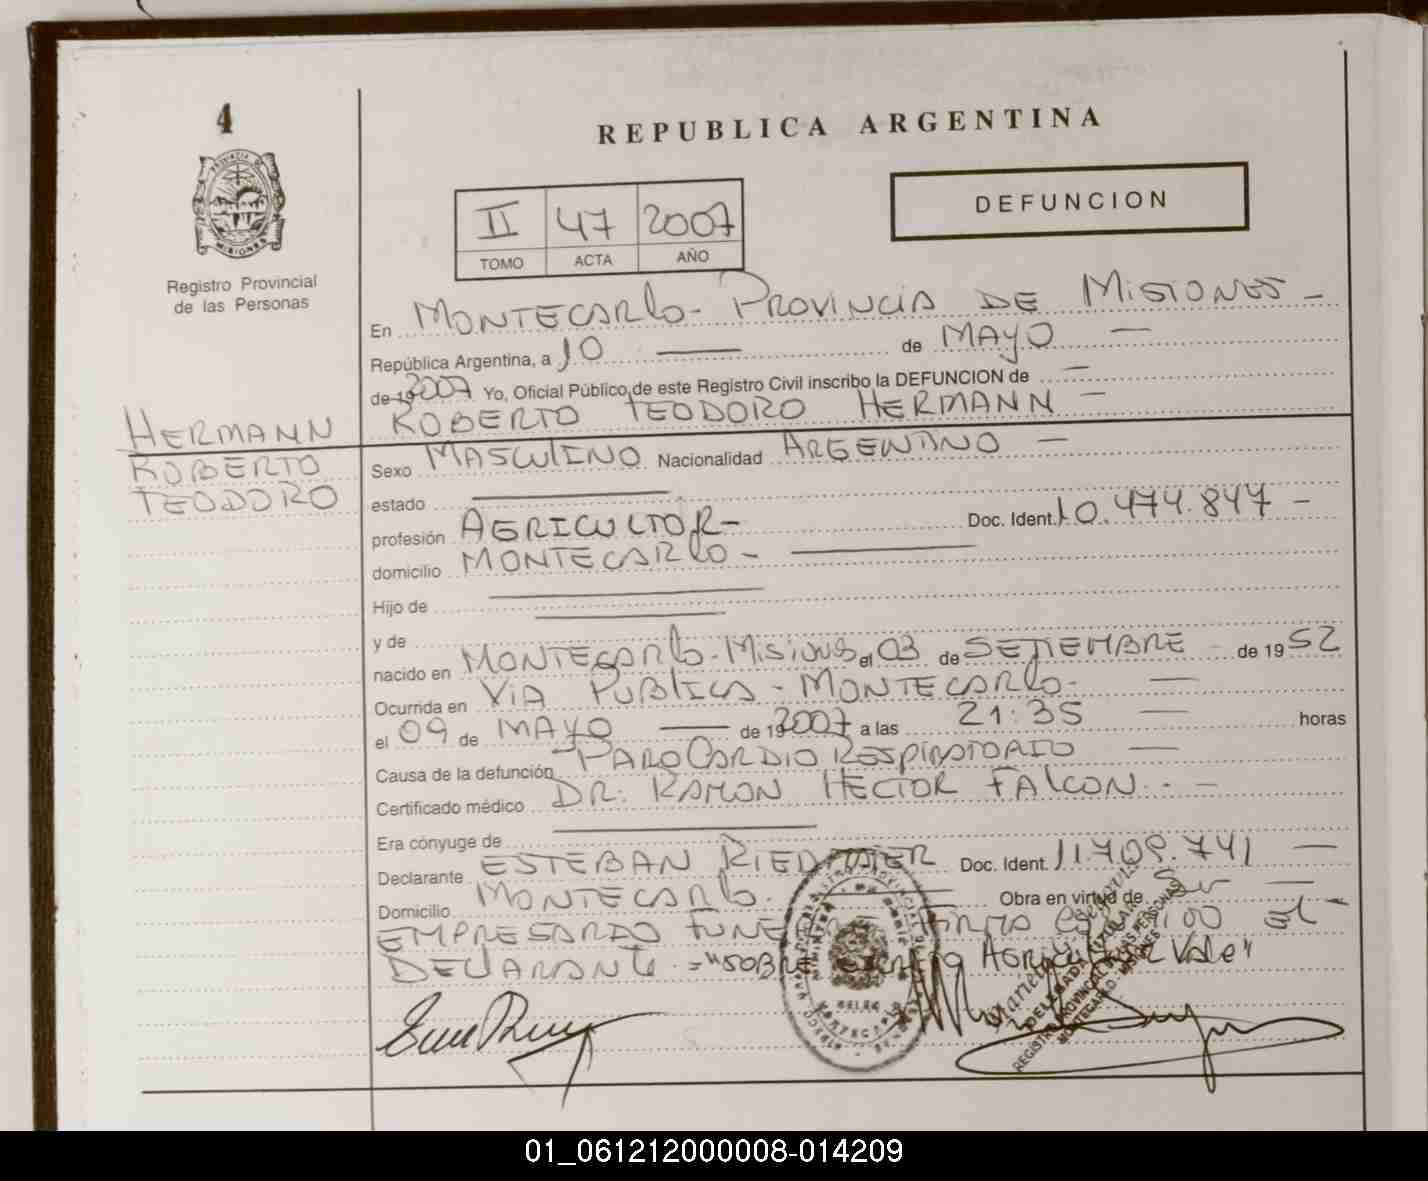 4
REPUBLICA ARGENTINA
DEFUNCION
II 47 2007
TOMO ACTA AÑO
Registro Provincial
de las Personas
En MONTECARLO - PROVINCIA DE MISIONES -
República Argentina, a 10 — de MAYO —
de 19 2007 Yo, Oficial Público de este Registro Civil inscribo la DEFUNCION de —
ROBERTO TEODORO HERMANN -
HERMANN
ROBERTO
TEODORO
Sexo MASCULINO Nacionalidad ARGENTINO —
estado —
profesión AGRICULTOR - Doc. Ident. 10.474.847 -
domicilio MONTECARLO - —
Hijo de —
y de —
nacido en MONTECARLO - Misiones el 03 de SETIEMBRE - de 1952
Ocurrida en VIA PUBLICA - MONTECARLO - —
el 09 de MAYO — de 19 2007 a las 21:35 — horas
Causa de la defunción PARO CARDIO RESPIRATORIO —
Certificado médico DR: RAMON HECTOR FALCON. - —
Era cónyuge de —
Declarante ESTEBAN Doc. Ident. 11.709.741 —
Domicilio MONTECARLO. — Obra en virtud de Ser —
EMPRESARIO el -
DECLARANTE = "SOBRE Vale"
DELEGADA TITULAR
REGISTRO PROVINCIAL DE LAS PERSONAS
MONTECARLO - MISIONES
01_061212000008-014209